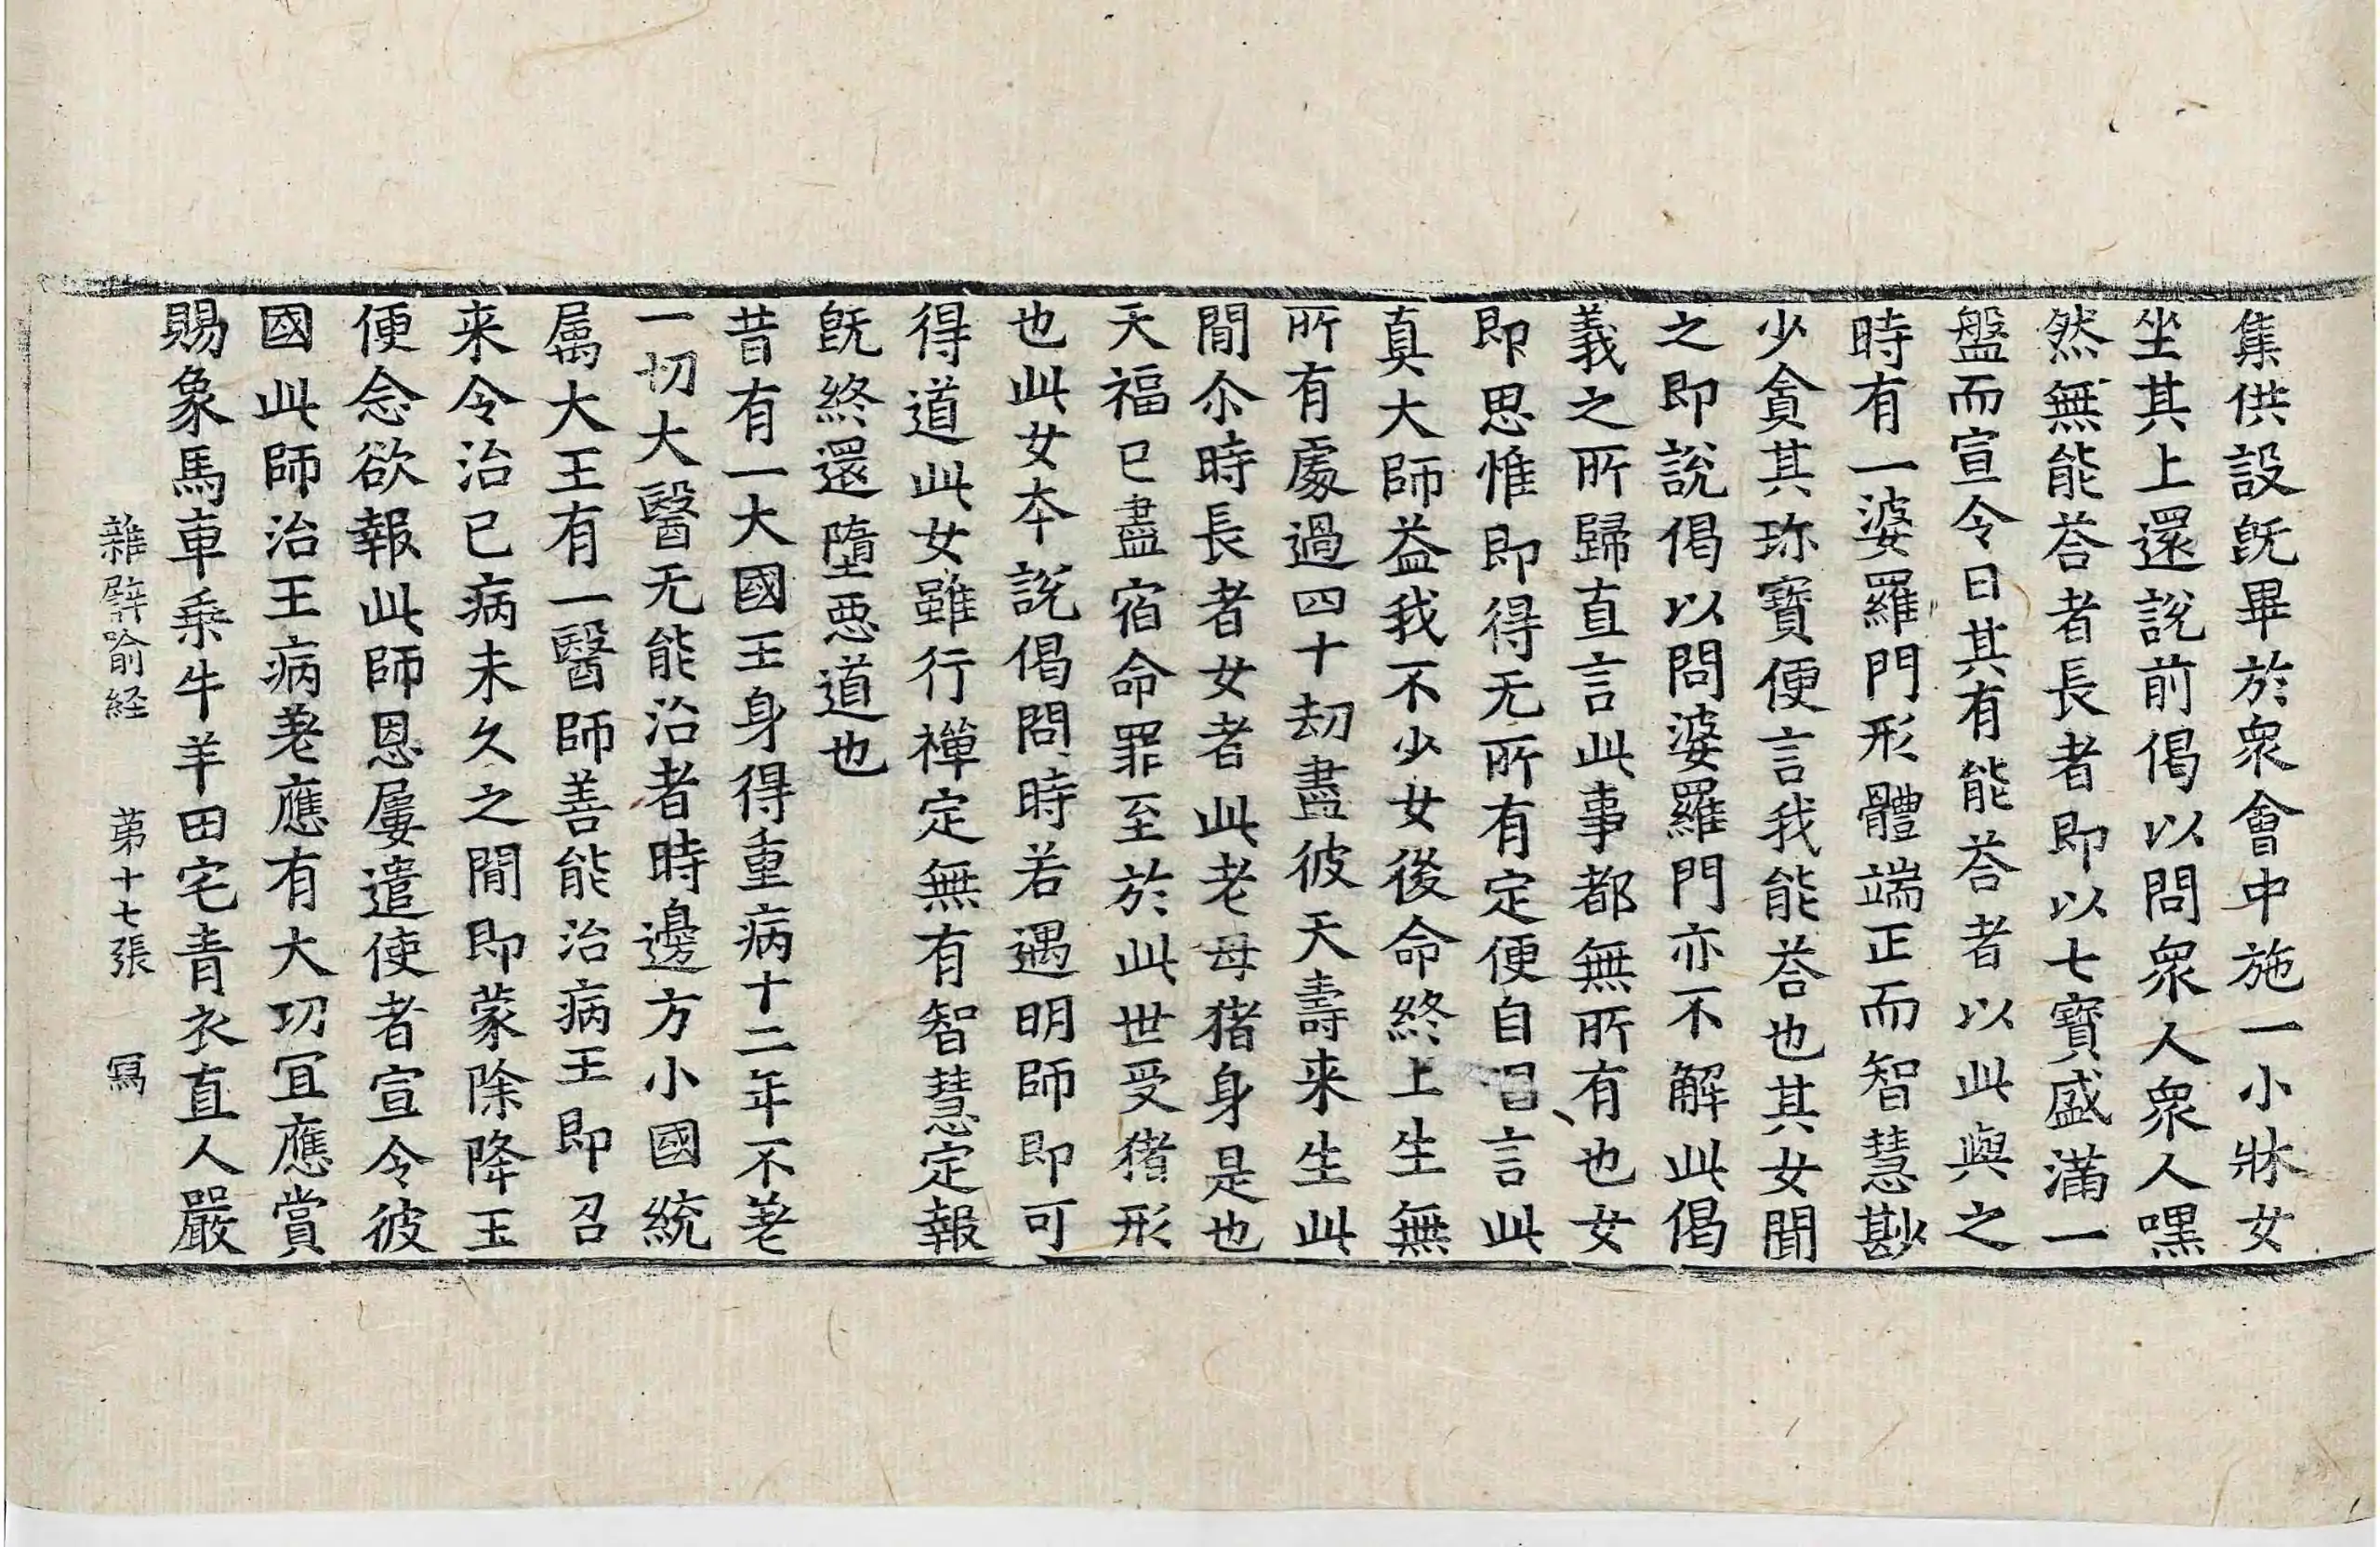 集供設旣畢於衆會中施一小牀女
坐其上還說前偈以問衆人衆人嘿
然無能荅者長者即以七寶盛滿一
盤而宣令曰其有能荅者以此與之
時有一婆羅門形體端正而智慧尠
少貪其珎寶便言我能荅也其女聞
之即說偈以問婆羅門亦不解此偈
義之所歸直言此事都無所有也女
即思惟即得无所有定便自唱言此
真大師益我不少女後命終上生無
所有處過四十劫盡彼天壽来生此
閒尒時長者女者此老母猪身是也
天福已盡宿命罪至於此世受猪形
也此女夲說偈問時若遇明師即可
得道此女雖行禪定無有智慧定報
旣終還墮惡道也
昔有一大國王身得重病十二年不差
一切大醫无能治者時邊方小國統
属大王有一醫師善能治病王即召
来令治已病未久之閒即蒙除降王
便念欲報此師恩屢遣使者宣令彼
國此師治王病差應有大功冝應賞
賜象馬車乗牛羊田宅青衣直人嚴
雜譬喻経 第十七張 冩